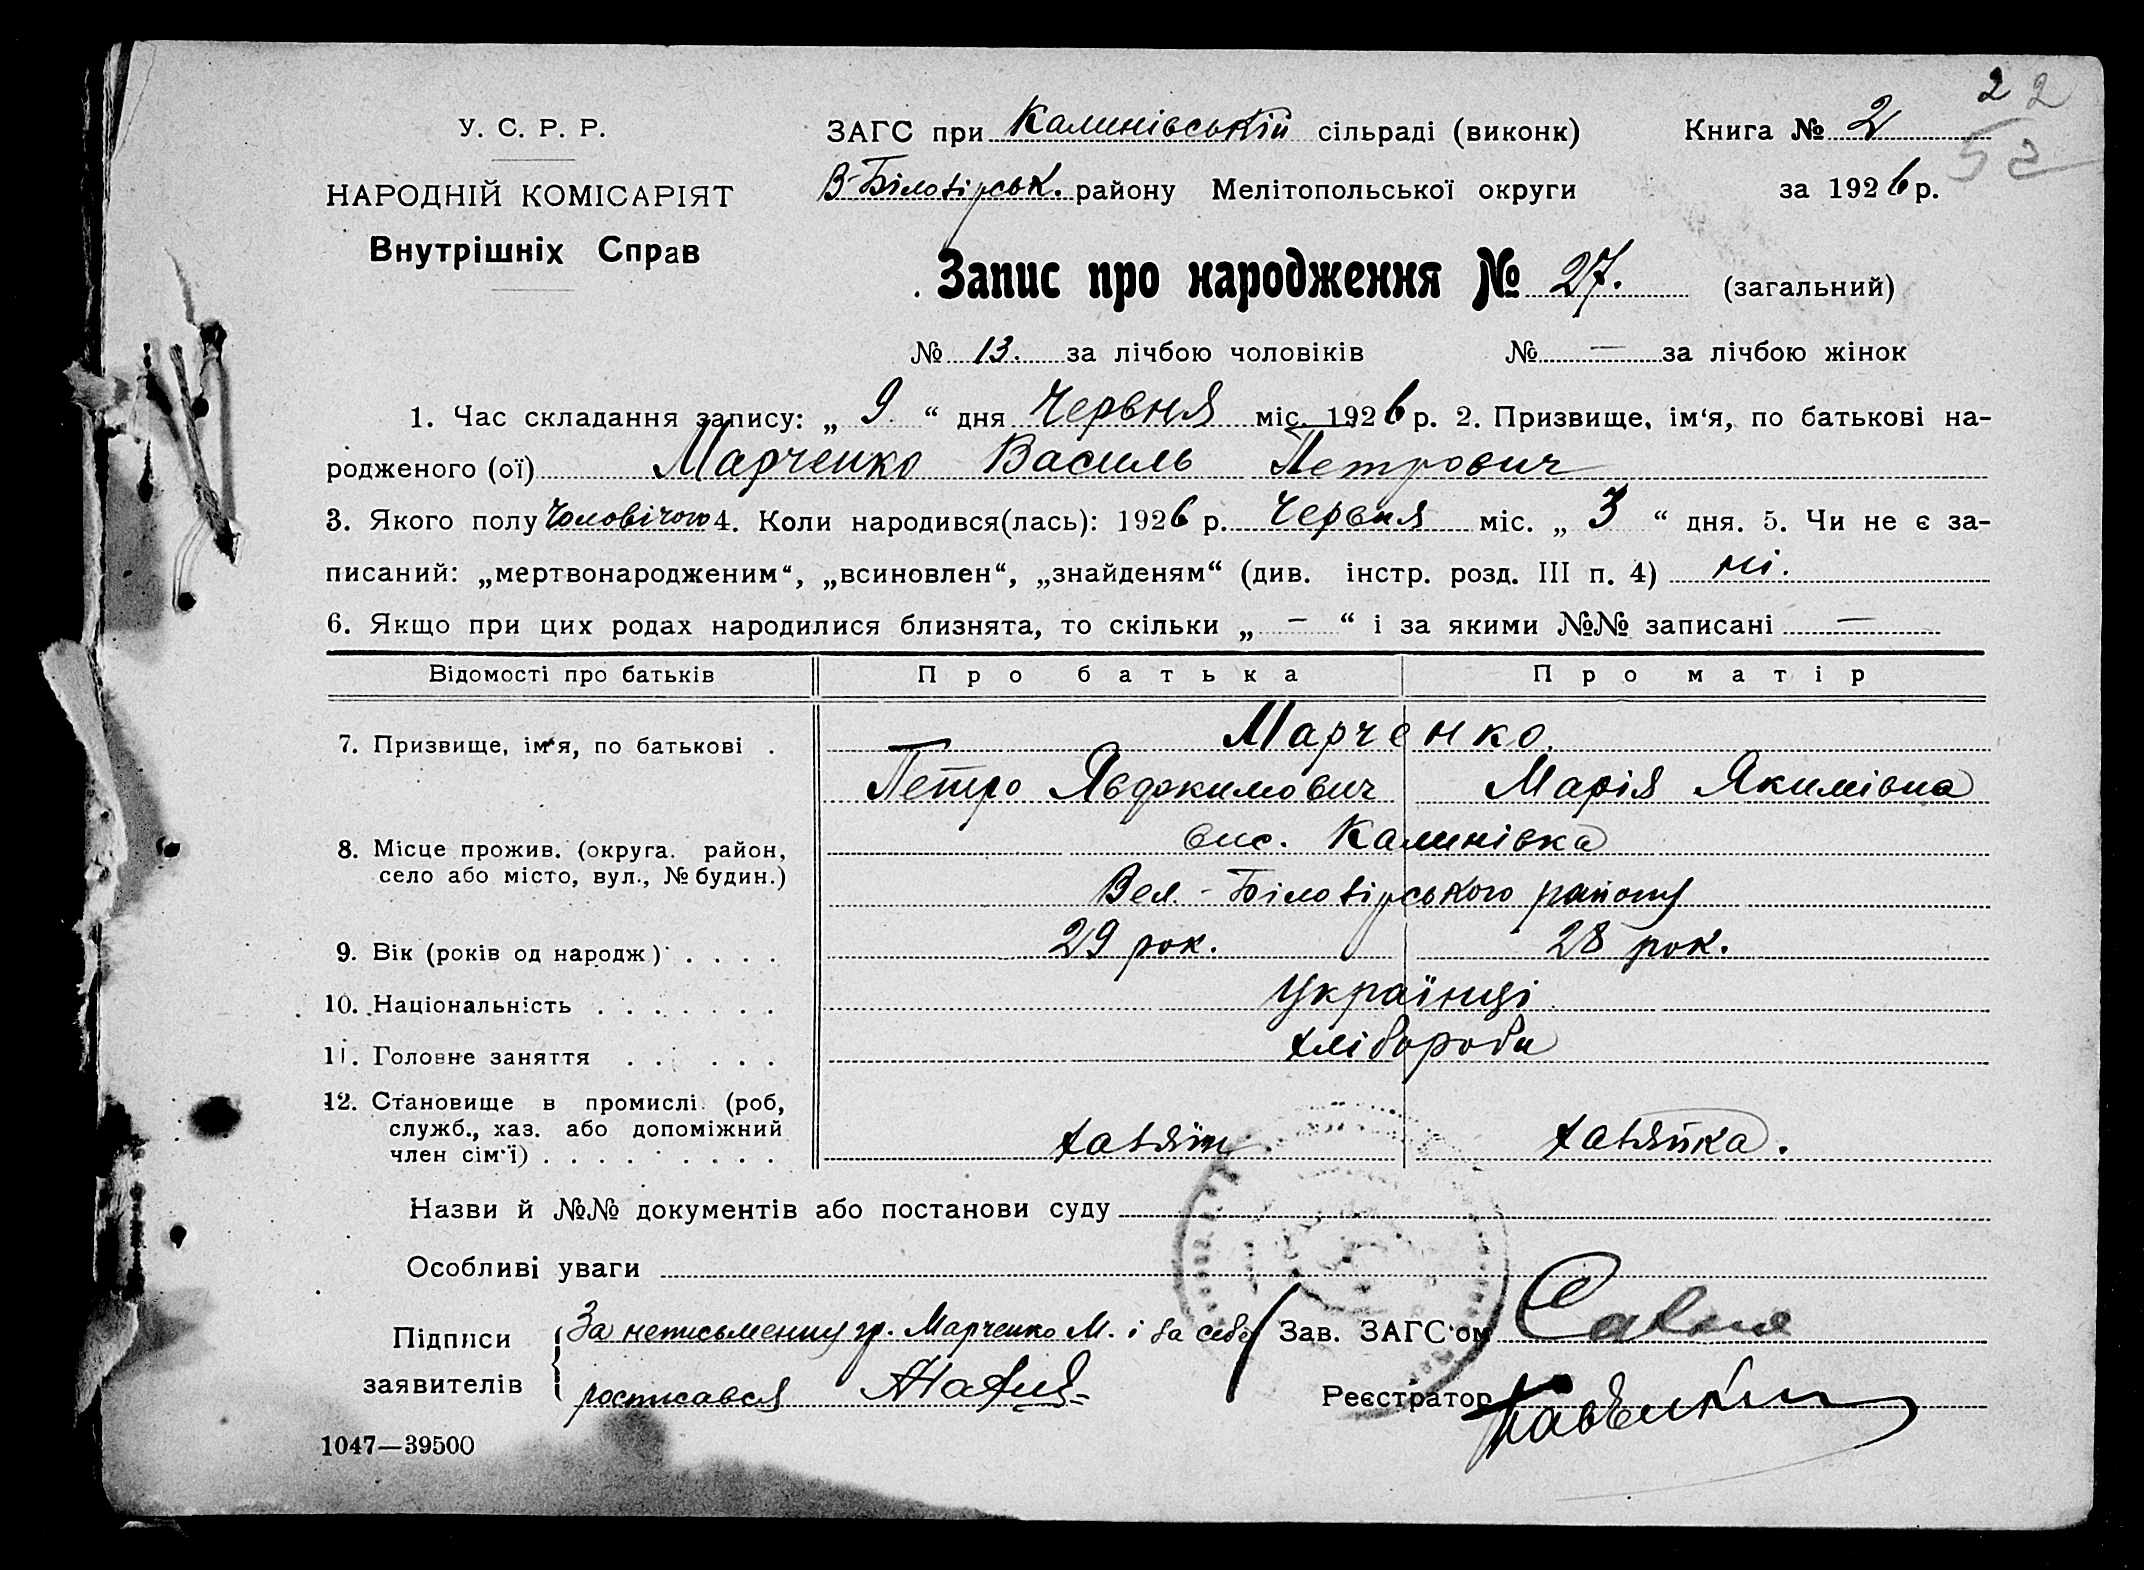 2 2
52
У. С. Р. Р.
НАРОДНІЙ КОМІСАРІЯТ
Внутрішніх Справ
ЗАГС при Калинівській сільраді (виконк)
Книга № 2
В-Білозірськ. району Мелітопольської округи
за 1926 р.
Запис про народження № 27. (загальний)
№ 13. за лічбою чоловіків № — за лічбою жінок
1. Час складання запису: „ 9 “ дня Червня міс. 1926 р. 2. Призвище, ім‘я, по батькові на-
родженого (ої) Марченко Василь Петрович
3. Якого полу Чоловічого 4. Коли народився(лась): 1926 р. Червня міс. „ 3 “ дня. 5. Чи не є за-
писаний: „мертвонародженим“, „всиновлен“, „знайденям“ (див. інстр. розд. III п. 4) ні.
6. Якщо при цих родах народилися близнята, то скільки „ – “ і за якими №№ записані —
Відомості про батьків Про батька Про матір
7. Призвище, ім‘я, по батькові . Марченко
Петро Явдокимович Марія Якимівна
8. Місце прожив. (округа. район, вис. Калинівка
село або місто, вул., № будин.)
Вел.-Білозірського району
9. Вік (років од народж) . . . . 29 рок. 28 рок.
10. Національність . . . . . . . Українці
11. Головне заняття . . . . . . хлібороби
12. Становище в промислі (роб,
служб., хаз. або допоміжний хазяїн хазяйка.
член сім‘ї) . . . . . . . . .
Назви й №№ документів або постанови суду
Особливі уваги
Підписи
заявителів
За неписьменну гр. Марченко М. і за себе
росписався
Зав. ЗАГС‘ом
Реєстратор
1047—39500